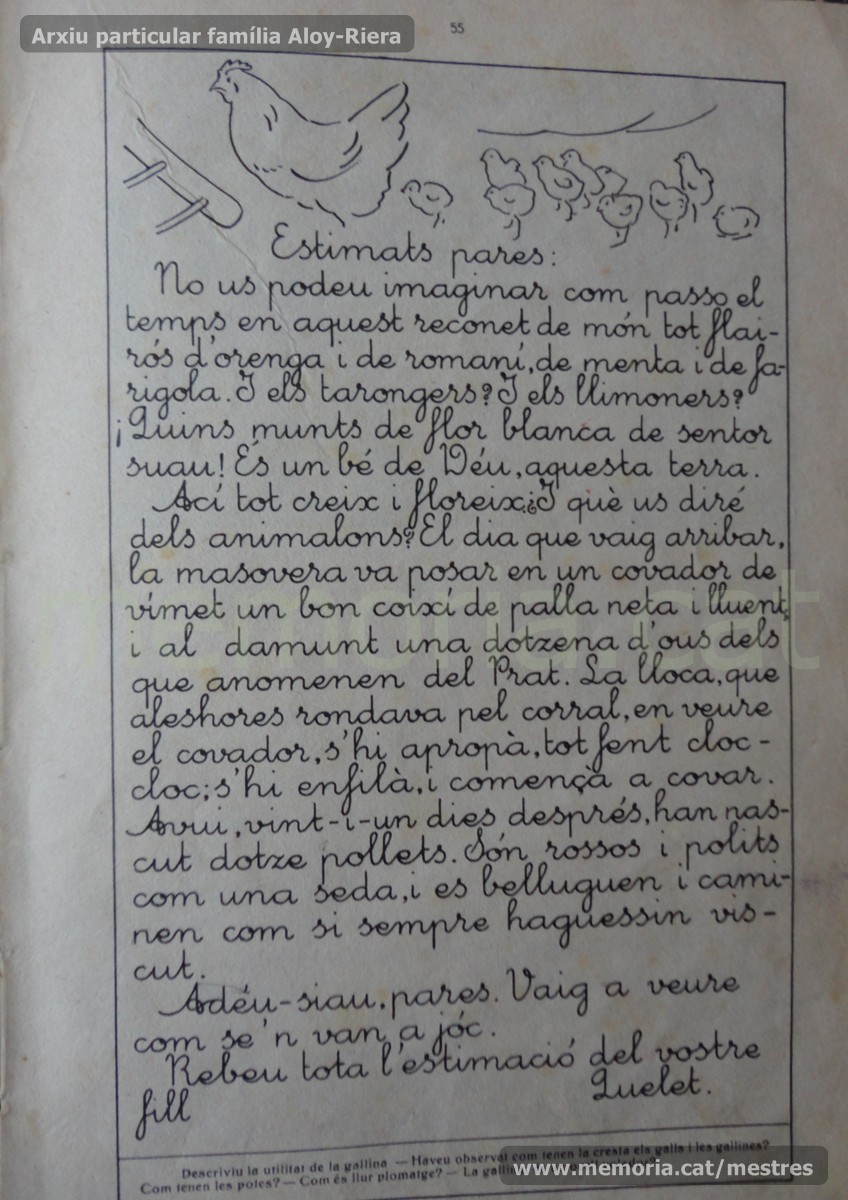 Arxiu particular família Aloy-Riera
55
Estimats pares:
No us podeu imaginar com passo el
temps en aquest reconet de món tot flai-
rós d'orenga i de romaní, de menta i de fa-
rigola. I els tarongers? I els llimoners?
¡Quins munts de flor blanca de sentor
suau! És un bé de Déu, aquesta terra.
Ací tot creix i floreix. ¿I què us diré
dels animalons? El dia que vaig arribar,
la masovera va posar en un covador de
vímet un bon coixí de palla neta i lluent,
i al damunt una dotzena d'ous dels
que anomenen del Prat. La lloca, que
aleshores rondava pel corral, en veure
el covador, s'hi apropà, tot fent cloc-
cloc; s'hi enfilà, i començà a covar.
Avui, vint-i-un dies després, han nas-
cut dotze pollets. Són rossos i polits
com una seda, i es belluguen i cami-
nen com si sempre haguessin vis-
cut.
Adéu-siau, pares. Vaig a veure
com se'n van a jóc.
Rebeu tota l'estimació del vostre
fill Quelet.
Descriviu la utilitat de la gallina — Haveu observat com tenen la cresta els galls i les gallines?
Com tenen les potes? — Com és llur plomatge? — La
www.memoria.cat/mestres